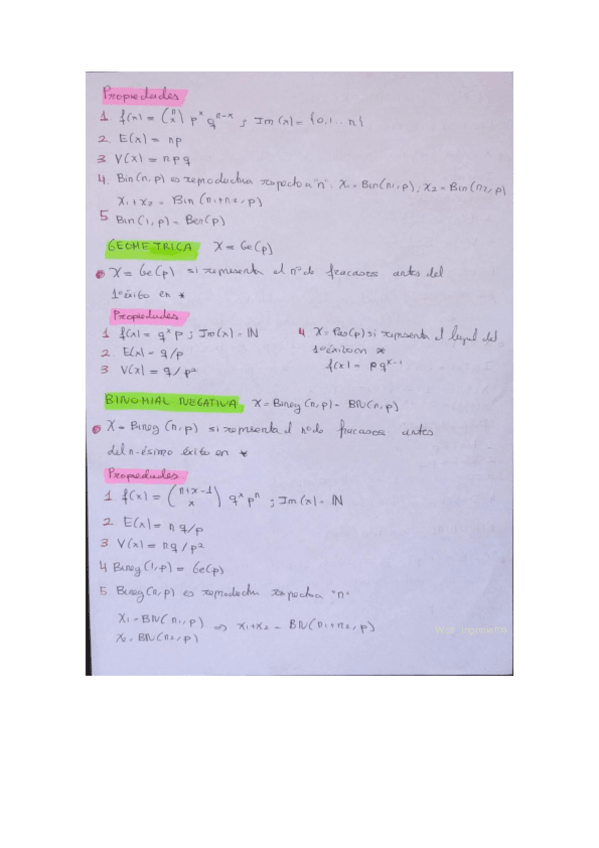 Propiedades
1. f(x) = (n x) p^x q^(n-x) ; Im(x) = {0,1...n}
2. E(x) = np
3 V(x) = npq
4. Bin(n,p) es reproductiva respecto a "n". X1 = Bin(n1,p), X2 = Bin(n2,p)
X1+X2 = Bin(n1+n2,p)
5 Bin(1,p) = Ber(p)
GEOMETRICA X = Ge(p)
X = Ge(p) si representa el nº de fracasos antes del
1º éxito en *
Propiedades
1 f(x) = q^x p ; Im(x) = IN
2. E(x) = q/p
3 V(x) = q/p²
4. X = Pas(p) si representa el lugar del
1º éxito en *
f(x) = p q^(x-1)
BINOMIAL NEGATIVA X = Bineg(n,p) = BN(n,p)
X = Bineg(n,p) si representa el nº de fracasos antes
del n-ésimo éxito en *
Propiedades
1. f(x) = (n+x-1 x) q^x p^n ; Im(x) = IN
2. E(x) = nq/p
3. V(x) = nq/p²
4 Bineg(1,p) = Ge(p)
5. Bineg(n,p) es reproductiva respecto a "n"
X1 = BN(n1,p) ⇒ X1+X2 = BN(n1+n2,p)
X2 = BN(n2,p)